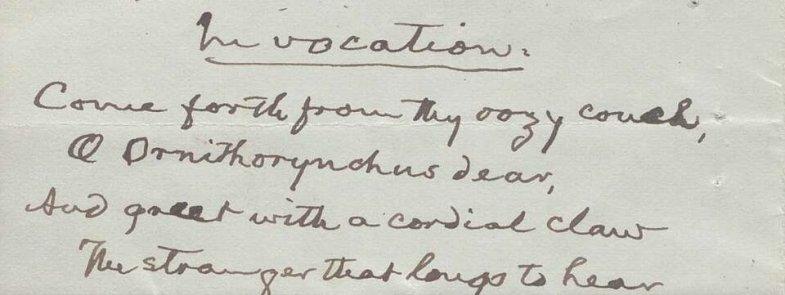 Invocation.
Come forth from thy oozy couch,
O Ornithorynchus dear,
And greet with a cordial claw
The stranger that longs to hear